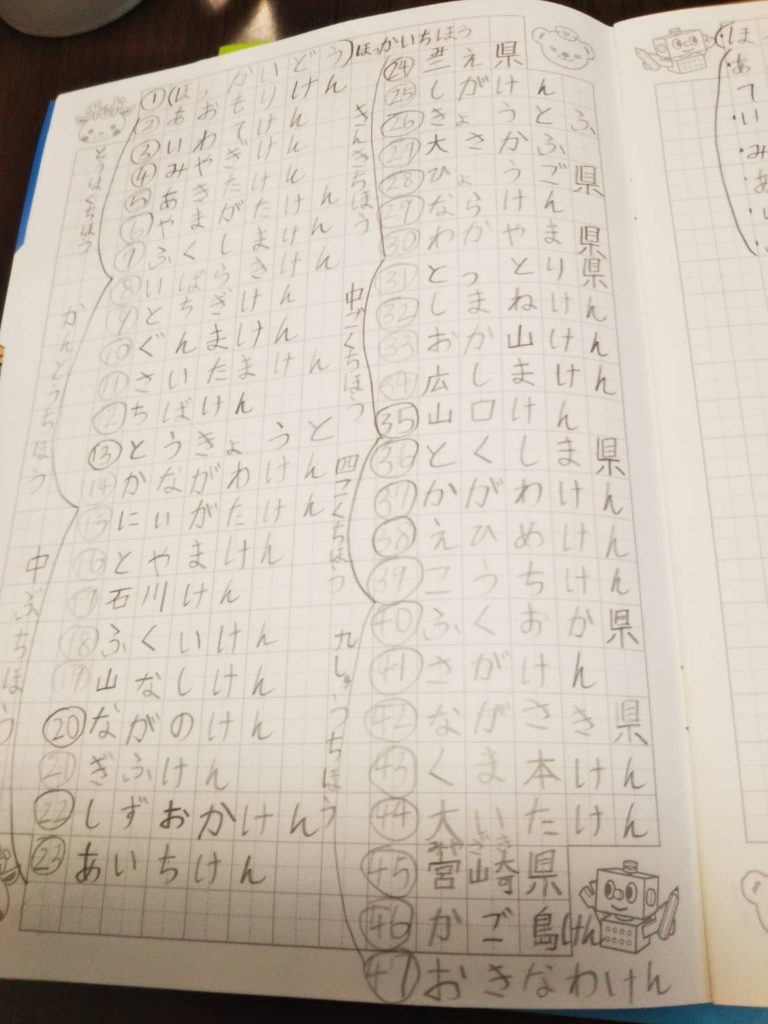 ①ほっかいどう
ほっかいちほう
②あおもりけん
③いわてけん
④みやぎけん
⑤あきたけん
⑥やまがたけん
⑦ふくしまけん
とうほくちほう
⑧いばらきけん
⑨とちぎけん
⑩ぐんまけん
⑪さいたまけん
⑫ちばけん
⑬とうきょうと
⑭かながわけん
かんとうちほう
⑮にいがたけん
⑯とやまけん
⑰石川けん
⑱ふくいけん
⑲山なしけん
⑳ながのけん
㉑ぎふけん
㉒しずおかけん
㉓あいちけん
中ぶちほう
㉔三え県
㉕しがけん
㉖きょうとふ
㉗大さかふ
㉘ひょうご県
㉙ならけん
㉚わかやま県
きんきちほう
㉛とっとり県
㉜しまねけん
㉝おか山けん
㉞広しまけん
㉟山口けん
中ごくちほう
㊱とくしま県
㊲かがわけん
㊳えひめけん
㊴こうちけん
四こくちほう
㊵ふくおか県
㊶さがけん
㊷ながさき県
㊸くま本けん
㊹大いたけん
㊺宮崎県
みやざき
㊻かご島けん
㊼おきなわけん
九しゅうちほう